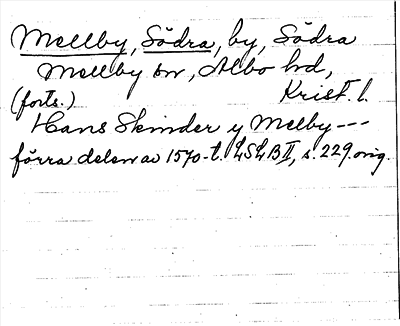 Mellby, Södra, by, Södra
Mellby sn, Albo hd,
(forts.) Krist. l.
Hans Skinder y Melby---
förra delen av 1570-t. LSLB II, s. 229. orig.